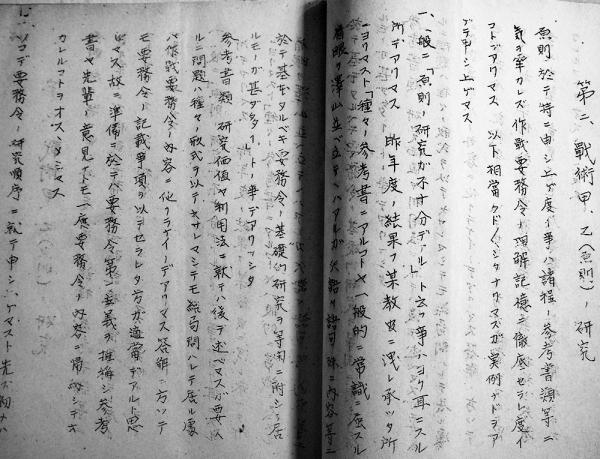 第二、戰術甲、乙(原則)ノ研究
原則ニ於テ特ニ申シ上ゲ度イ事ハ諸種ノ参考書類等ニ
気ヲ奪ハレズ作戦要務令ノ理解記憶ニ徹底セラレ度イ
コトデアリマス 以下相当クドクドシクナリマスガ実例ナドヲア
ゲテ申シ上ゲマス
一、一般ニ「原則ノ研究ガ不十分デアル」ト云フ事ハヨク耳ニスル
所デアリマス 昨年度ノ結果ヲ某教官ニ洩レ承ツタ所
ニヨリマスト「種々ノ参考書ニアル一般的ニ常識ニ属スル
着眼ヲ澤山並ベ立テテハアルガ
於テ基キタルベキ要務令ノ基礎的研究ヲ等閑ニ附シテ居
ルモノガ甚ダ多イ」ト ノ事デアリマシタ
参考書類ノ研究価値ヤ利用法ニ就テハ後デ述ベマスガ要ハ
ルニ問題ハ種々ノ形式ヲ以テ サレマシテモ結局問ハレテ居ル處
ハ作戦要務令ノ内容ニ他ナラナイノデアリマス 答解ノ方ツテ
モ要務令ノ記載事項ヲ以テセラレタ方ガ適當デアルト思
ヒマス故ニ準備ニ於テハ要務令第一主義ヲ推称シ参考
書ヤ先輩ノ意見デモ一度要務令ノ内容ニ帰納シテオ
カレルコトヲオススメシマス
ソコデ要務令ノ研究順序ニ就テ申シ上ゲマスト先ヅ初メハ